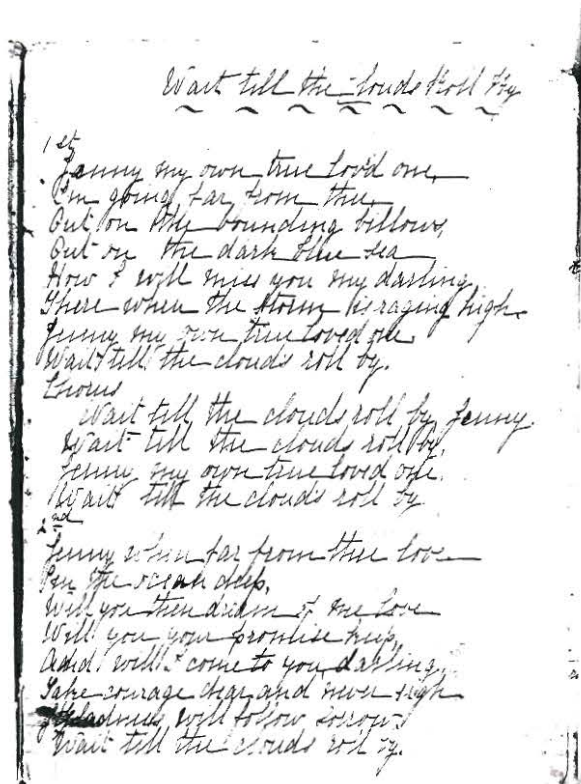 Wait till the Clouds Roll By
1st
Jenny my own true lov'd one,
I'm going far from thee,
Out on the bounding billows,
Out on the dark blue sea
How I will miss you my darling,
There when the storm is raging high.
Jenny my own true loved one
Wait till the clouds roll by.
Chorus
Wait till the clouds roll by Jenny.
Wait till the clouds roll by,
Jenny my own true loved one.
Wait till the clouds roll by
2nd
Jenny when far from thee love
I'm the ocean deep,
Will you then dream of me love
Will you your promise keep,
will I come to you darling,
Take courage dear and never sigh
Gladness will follow sorrow
Wait till the clouds roll by.